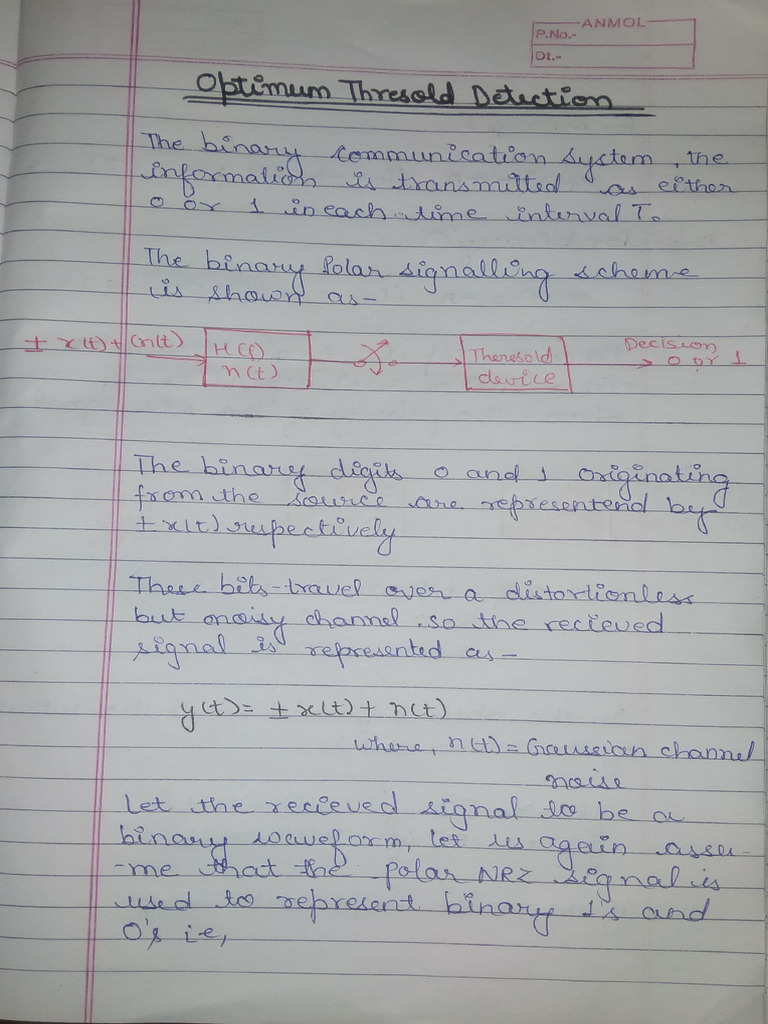 ANMOL
P.No.-
Dt.-
Optimum Thresold Detection
The binary communication system, the
information is transmitted as either
0 or 1 in each time interval To
The binary Polar signalling scheme
is shown as-
± x(t) + (n(t)
H(f)
n(t)
Theresold
device
Decision
0 or 1
The binary digits 0 and 1 originating
from the source are representend by
± x(t) respectively
These bits travel over a distortionless
but noisy channel. so the recieved
signal is represented as-
y(t) = ± x(t) + n(t)
where, n(t) = Gaussian channel
noise
Let the recieved signal to be a
binary waveform, let us again assu-
-me that the polar NRZ signal is
used to represent binary 1's and
0's ie,